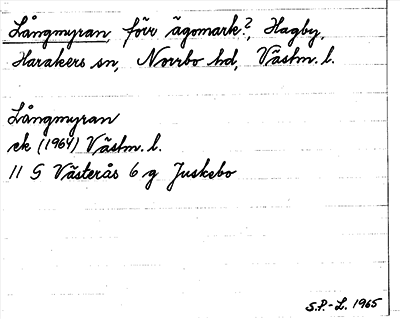 Långmyran förr ägomark?, Hagby,
Harakers sn, Norrbo hd, Västm. l.
Långmyran
ek (1964) Västm. l.
11 G Västerås 6 g Juskebo
S.P.-L. 1965